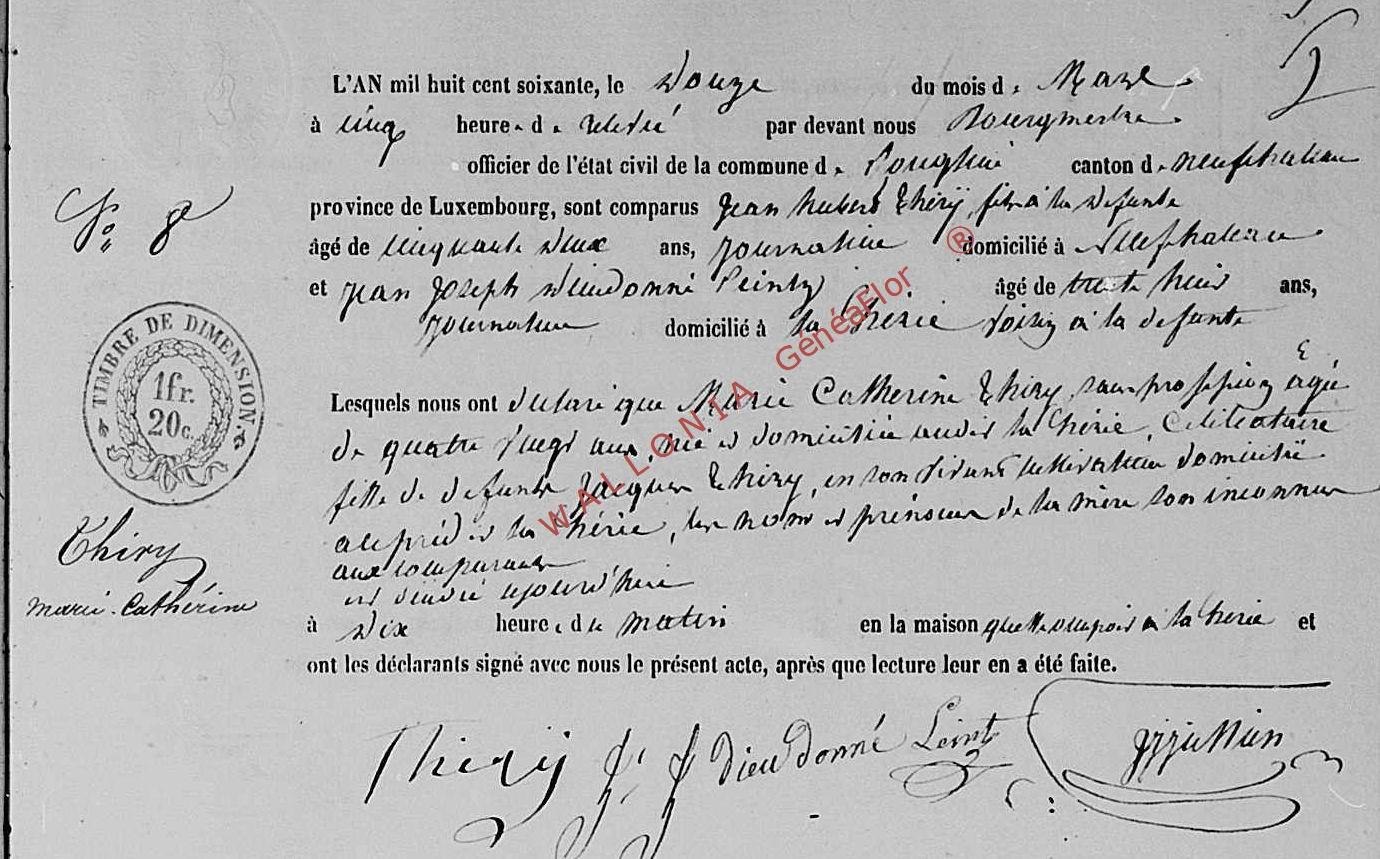 L'AN mil huit cent soixante, le Douze du mois de Mars
à cinq heures de relevé par devant nous Bourgmestre
officier de l'état civil de la commune de Longlier canton de neufchateau
province de Luxembourg, sont comparus Jean hubert Thiry, fils à la defunte
âgé de cinquante deux ans, journalier domicilié à Neufchateau
et Jean Joseph Dieudonné âgé de trente huit ans,
journalier domicilié à la hérie voisin à la defunte
Lesquels nous ont declaré que Marie Catherine Thiry, sans profession agée
de quatre vingt ans, née et domiciliée audit la hérie, Celibataire
fille de defunt Jacques Thiry, en son vivant cultivateur domicilié
et la hérie, les noms et prénoms de la mère son inconnus
aux comparants
est décédé aujourd'hui
à Dix heures du matin en la maison qu'elle occupoit à la hérie et
ont les déclarants signé avec nous le présent acte, après que lecture leur en a été faite.
No. 8
TIMBRE DE DIMENSION
1fr.
20c.
Thiry
Marie-Cathérine
Thiry J. J. Dieudonné
WALLONIA GénéaFlor ®